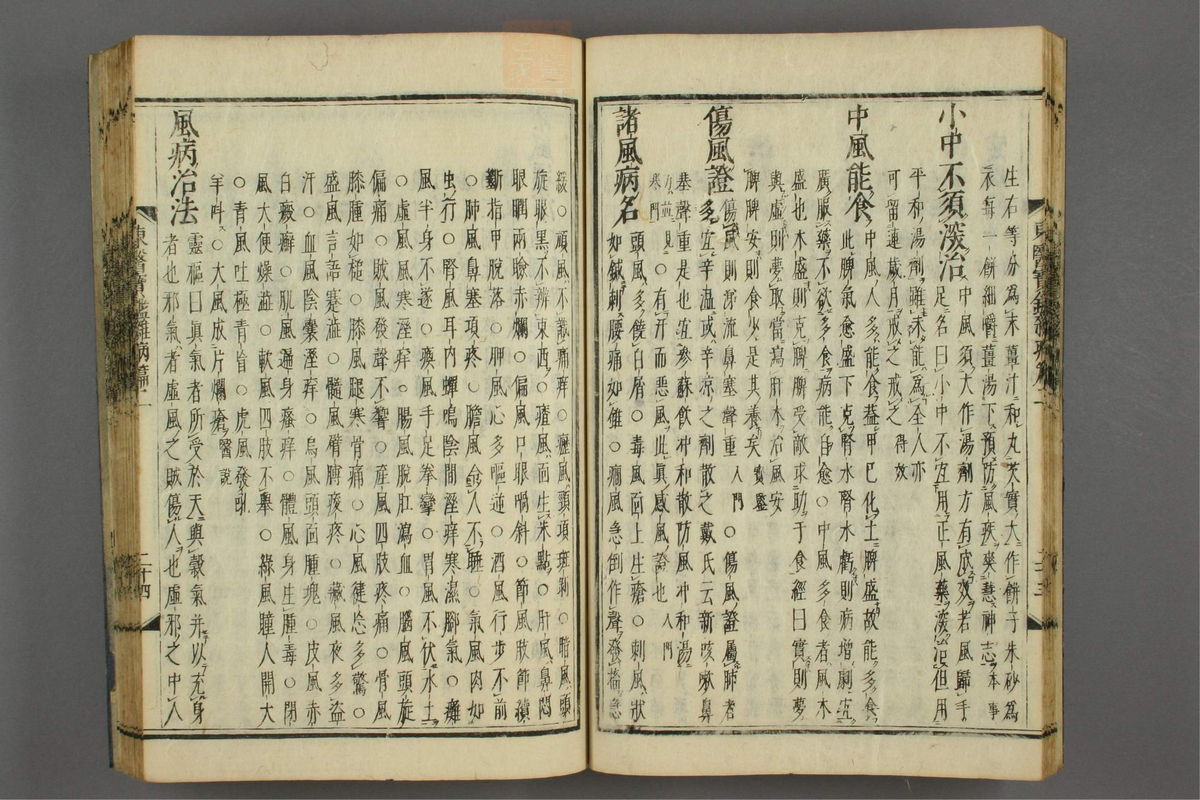 生右等分爲末薑汁和丸芡實大作餠子朱砂爲
衣每一餠細嚼薑湯下預防風疾爽慧神志本事
小中不須深治中風須大作湯劑方有成效者風歸手
足名曰小中不宜用正風藥深治但用
平和湯劑雖未能爲全人亦
可留連歲月戒之戒之得效
中風能食中風人多能食蓋甲己化土脾盛故能多食
此脾氣愈盛下克腎水腎水虧則病增劇宜
廣服藥不欲多食病能自愈○中風多食者風木
盛也木盛則克脾脾受敵求助于食經曰實則夢
與虛則夢取當瀉肝木治風安
脾脾安則食少是其養矣寶鑑
傷風證傷風則涕流鼻塞聲重入門○傷風證屬肺者
多宜辛溫或辛涼之劑散之戴氏云新咳嗽鼻
塞聲重是也宜參蘇飮冲和散防風冲和湯
方並見寒門○有汗而惡風此眞感風證也入門
諸風病名頭風多饒白屑○毒風面上生瘡○刺風狀
如鍼刺腰痛如錐○癎風急倒作聲發搐急
緩○頑風不識痛痒○癧風頭項斑剝○暗風頭
旋眼黑不辨東西○㾴風面生米點○肝風鼻悶
眼瞤兩瞼赤爛○偏風口眼喎斜○節風肢節續
斷指甲脫落○脾風心多嘔逆○酒風行步不前
○肺風鼻塞項疼○膽風令人不睡○氣風肉如
虫行○腎風耳內蟬鳴陰間溼痒寒濕脚氣○癱
風半身不遂○瘓風手足拳攣○胃風不伏水土
○虛風風寒溼痒○腸風脫肛瀉血○腦風頭旋
偏痛○賊風發聲不響○産風四肢疼痛○骨風
膝腫如槌○膝風腿寒骨痛○心風健忘多驚○
盛風言語蹇澁○髓風臂膊痠疼○藏風夜多盜
汗○血風陰囊溼痒○烏風頭面腫塊○皮風赤
白癜癬○肌風遍身瘙痒○體風身生腫毒○閉
風大便燥澁○軟風四肢不擧○綠風瞳人開大
○青風吐極青盲○虎風發吼
羊叫○大風成片爛瘡醫說
風病治法靈樞曰眞氣者所受於天與穀氣并以充身
者也邪氣者虛風之賊傷人也虛邪之中人